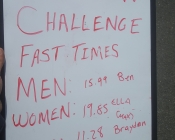 CHALLENGE
FAST TIMES
MEN: 15.99 Ben
WOMEN: 19.85 ELLA
11.28 Brayden